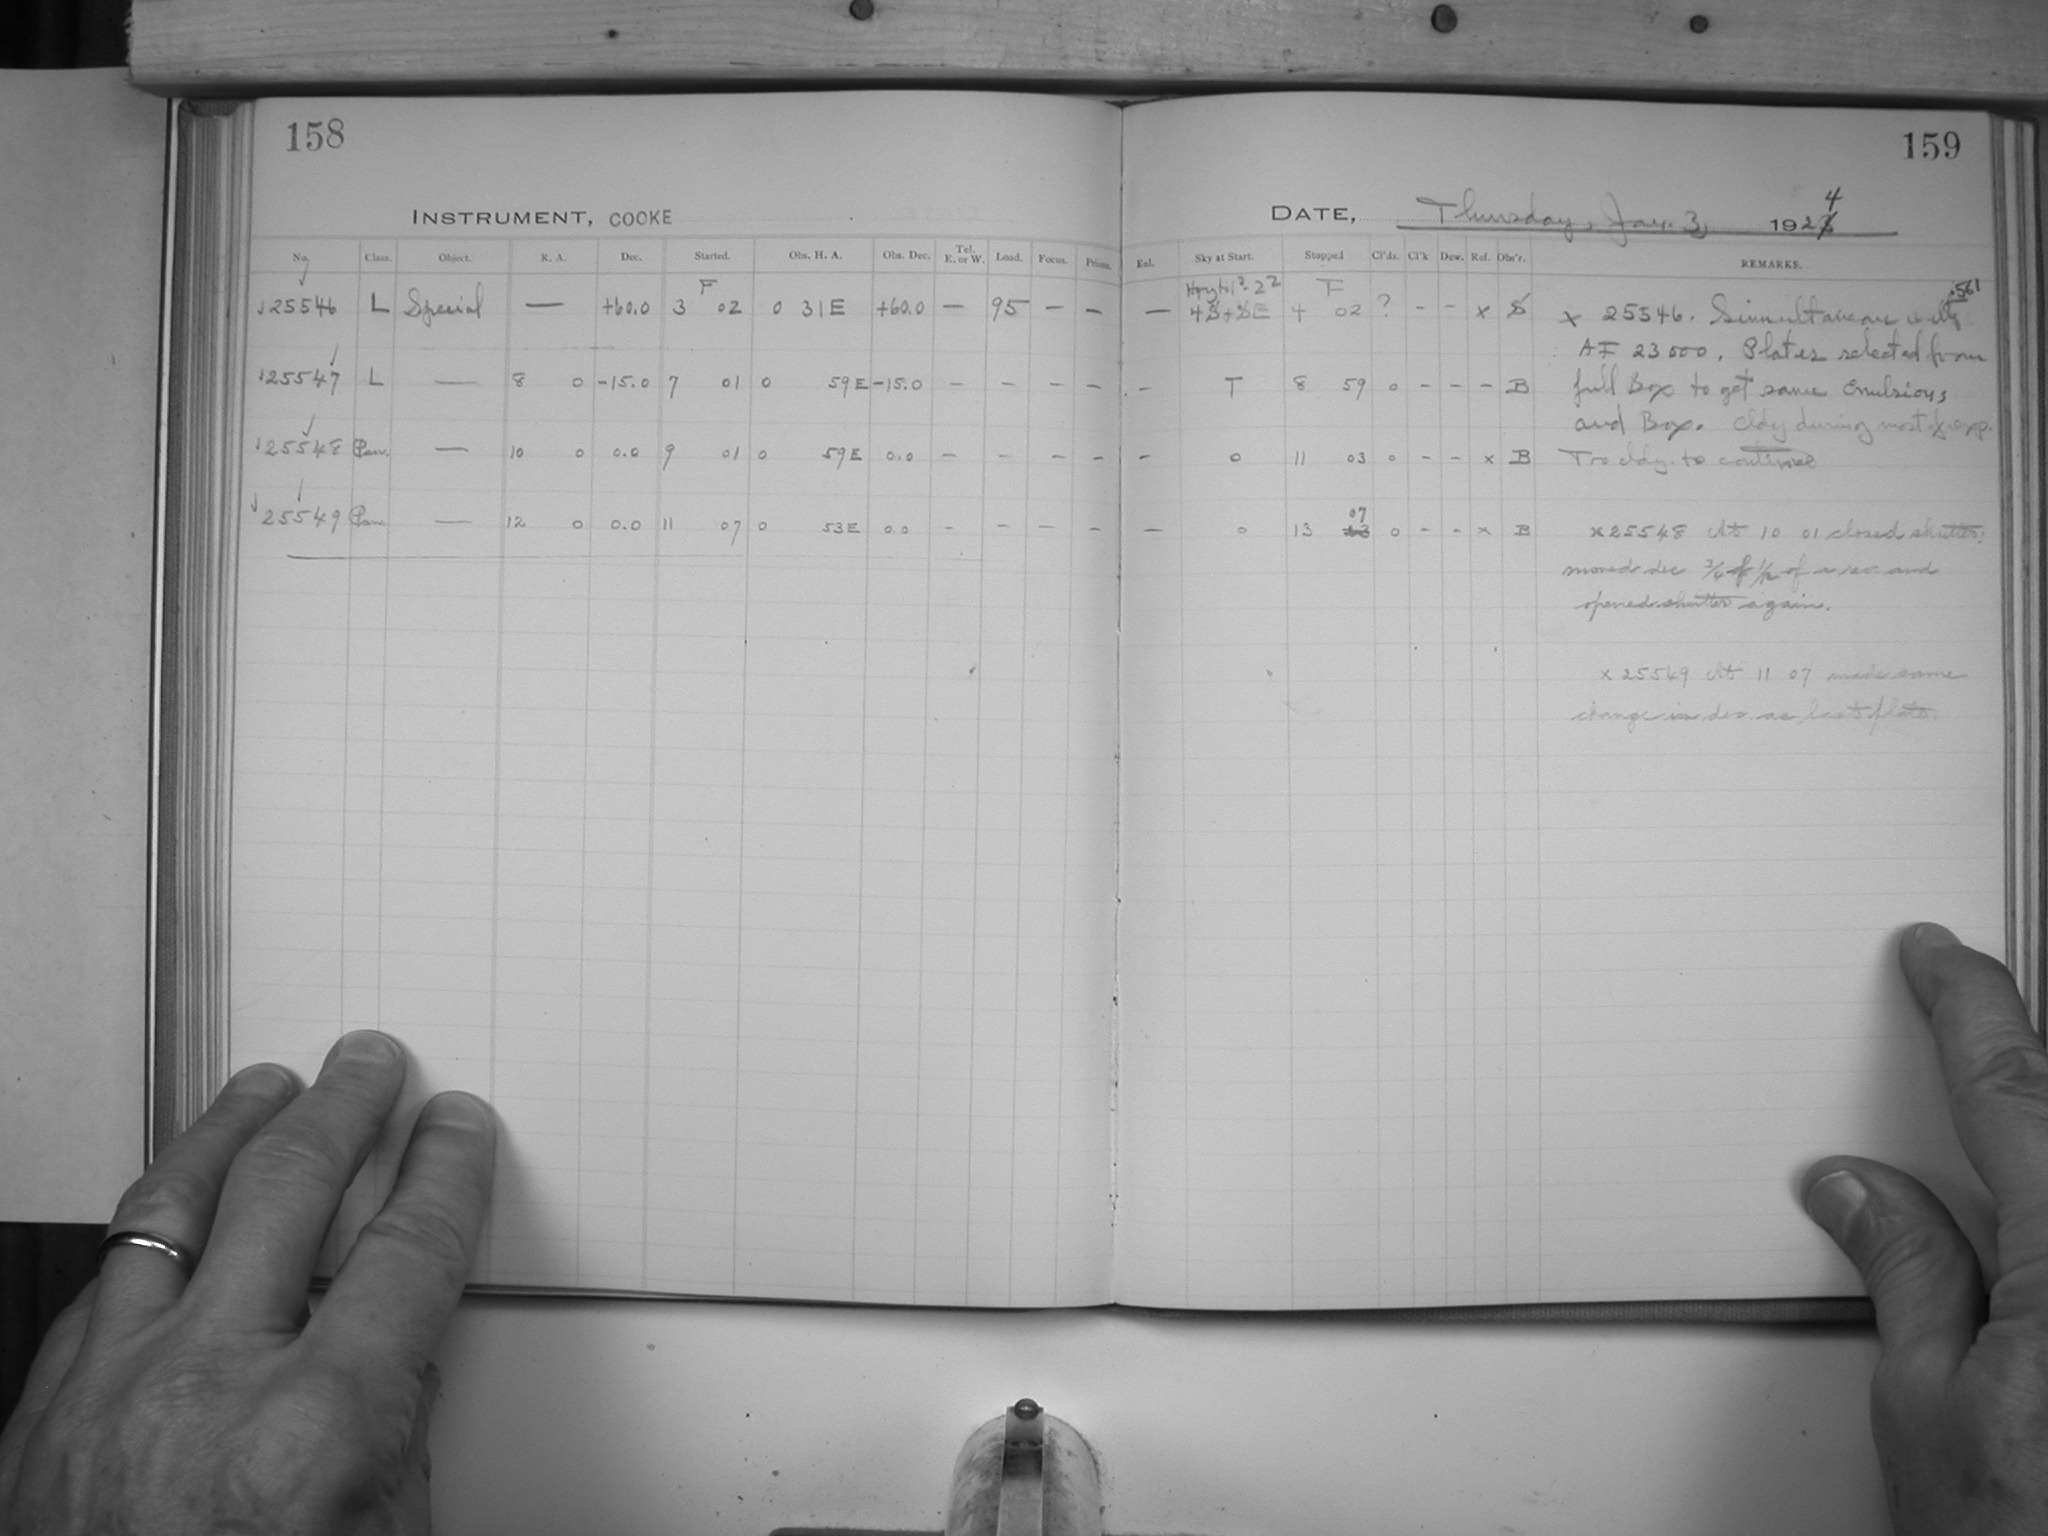 158
159
INSTRUMENT, COOKE
DATE, Thursday, Jan. 3, 1924
No. Class. Object. R. A. Dec. Started. Obs. H. A. Obs. Dec. Tel. E. or W. Load. Focus. Prisms. Eol. Sky at Start. Stopped Cl'ds. Cl'k Dew. Ref. Obs'r. REMARKS.
25546 L Special — +60.0 3 F 02 0 31E +60.0 — 95 — — — 4 F 02 ? - - x
25547 L — 8 0 -15.0 7 01 0 59E -15.0 - - - - - T 8 59 0 - - - B
25548 Pan. — 10 0 0.0 9 01 0 59E 0.0 - - - - - 0 11 03 0 - - x B
25549 Pan. — 12 0 0.0 11 07 0 53E 0.0 - - - - — 0 13 07 0 - - x B
x 25546. Simultaneous with
AF 23500. Plates selected from
full Box to get same Emulsions
and Box. Cldy during most of exp.
Too cldy. to continue
x 25548 At 10 01 closed shutter,
moved dec 3/4 of 1/2 of a rev. and
opened shutter again.
x 25549 At 11 07 made same
change in dec. as last plate.